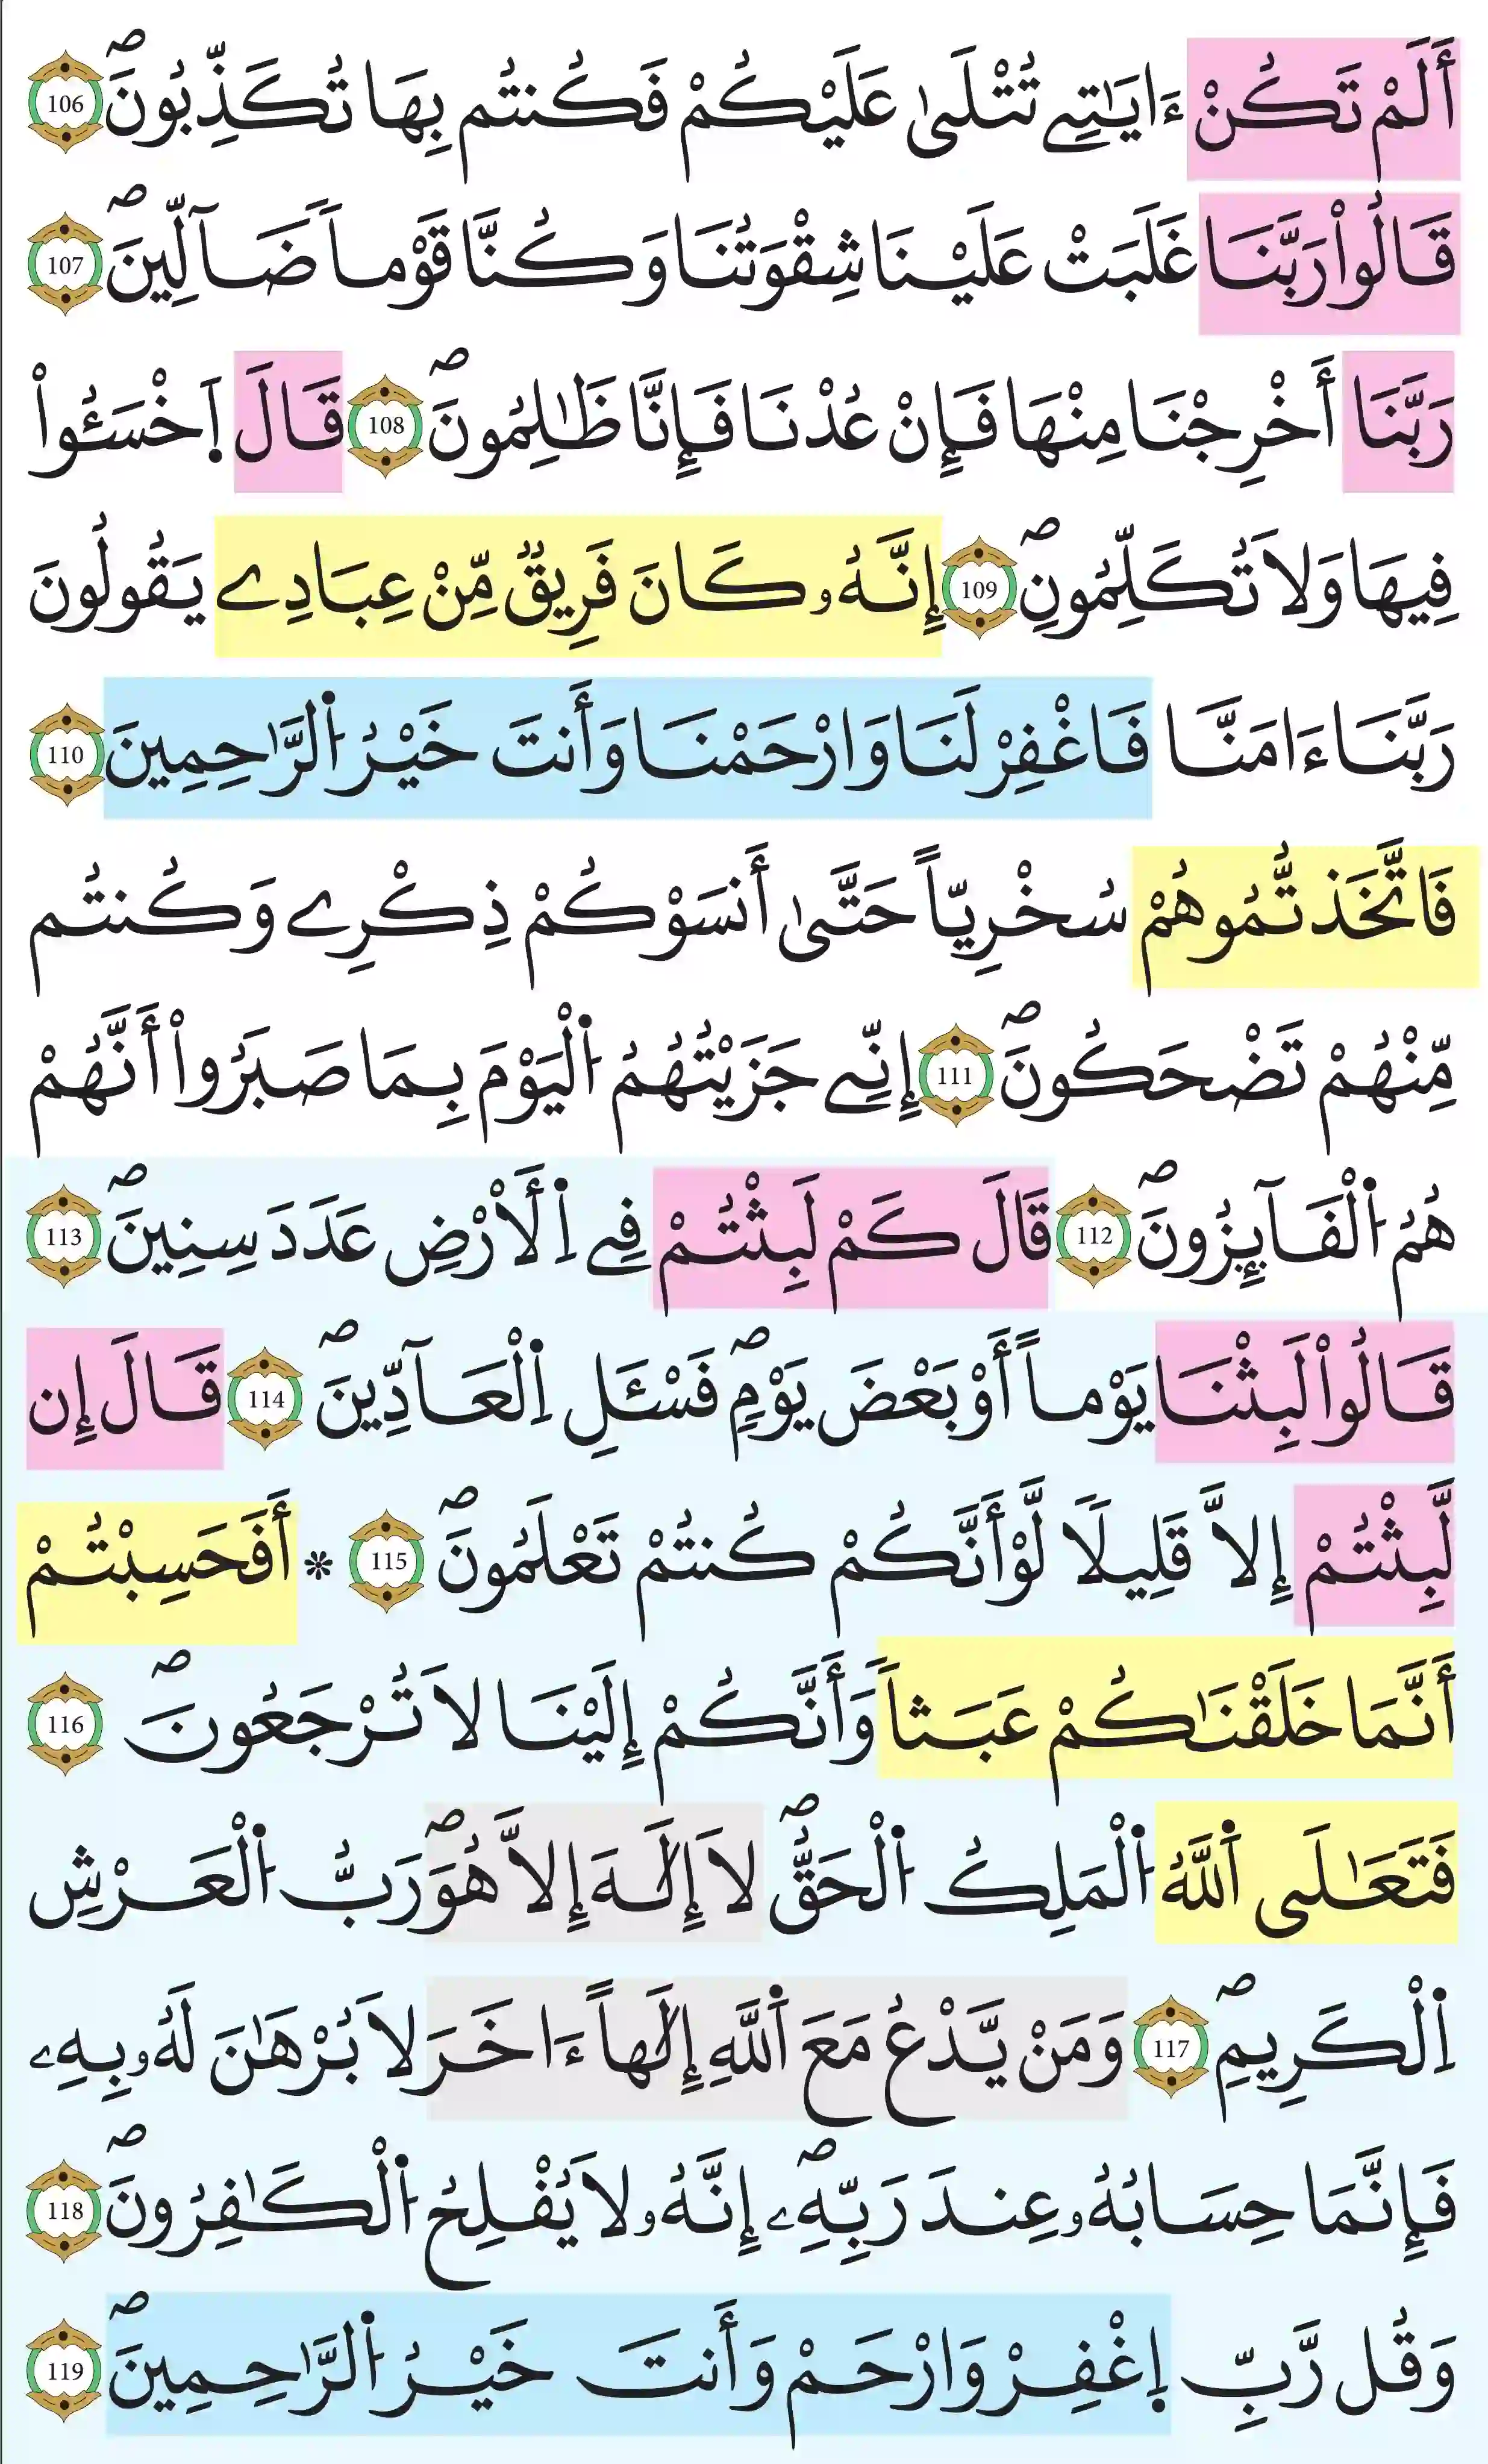 أَلَمْ تَكُنْ ءَايَٰتِے تُتْلَىٰ عَلَيْكُمْ فَكُنتُم بِهَا تُكَذِّبُونَۖ 106
قَالُواْ رَبَّنَا غَلَبَتْ عَلَيْنَا شِقْوَتُنَا وَكُنَّا قَوْماٗ ضَآلِّينَۖ 107
رَبَّنَا أَخْرِجْنَا مِنْهَا فَإِنْ عُدْنَا فَإِنَّا ظَٰلِمُونَۖ 108 قَالَ اَ۪خْسَـُٔواْ
فِيهَا وَلَا تُكَلِّمُونِۖ 109 إِنَّهُۥ كَانَ فَرِيقٞ مِّنْ عِبَادِے يَقُولُونَ
رَبَّنَا ءَامَنَّا فَاغْفِرْ لَنَا وَارْحَمْنَا وَأَنتَ خَيْرُ اُ۬لرَّٰحِمِينَ 110
فَاتَّخَذتُّمُوهُمْ سُخْرِيّاً حَتَّىٰ أَنسَوْكُمْ ذِكْرِے وَكُنتُم
مِّنْهُمْ تَضْحَكُونَۖ 111 إِنِّے جَزَيْتُهُمُ اُ۬لْيَوْمَ بِمَا صَبَرُواْ أَنَّهُمْ
هُمُ اُ۬لْفَآئِزُونَۖ 112 قَالَ كَمْ لَبِثْتُمْ فِے اِ۬لَأَرْضِ عَدَدَ سِنِينَۖ 113
قَالُواْ لَبِثْنَا يَوْماً أَوْ بَعْضَ يَوْمٖۖ فَسْـَٔلِ اِ۬لْعَآدِّينَۖ 114 قَالَ إِن
لَّبِثْتُمْ إِلَّا قَلِيلٗا لَّوْ أَنَّكُمْ كُنتُمْ تَعْلَمُونَۖ 115 * أَفَحَسِبْتُمْ
أَنَّمَا خَلَقْنَٰكُمْ عَبَثاٗ وَأَنَّكُمْ إِلَيْنَا لَا تُرْجَعُونَۖ 116
فَتَعَٰلَى اَ۬للَّهُ اُ۬لْمَلِكُ اُ۬لْحَقُّۖ لَا إِلَٰهَ إِلَّا هُوَۖ رَبُّ اُ۬لْعَرْشِ
اِ۬لْكَرِيمِۖ 117 وَمَنْ يَّدْعُ مَعَ اَ۬للَّهِ إِلَٰهاً ءَاخَرَ لَا بُرْهَٰنَ لَهُۥ بِهِۦ
فَإِنَّمَا حِسَابُهُۥ عِندَ رَبِّهِۦۖ إِنَّهُۥ لَا يُفْلِحُ اُ۬لْكَٰفِرُونَۖ 118
وَقُل رَّبِّ اِ۪غْفِرْ وَارْحَمْ وَأَنتَ خَيْرُ اُ۬لرَّٰحِمِينَۖ 119